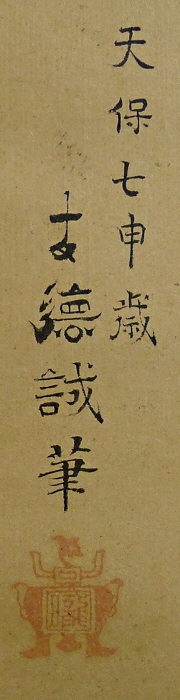 天保七申歳
友德誠筆